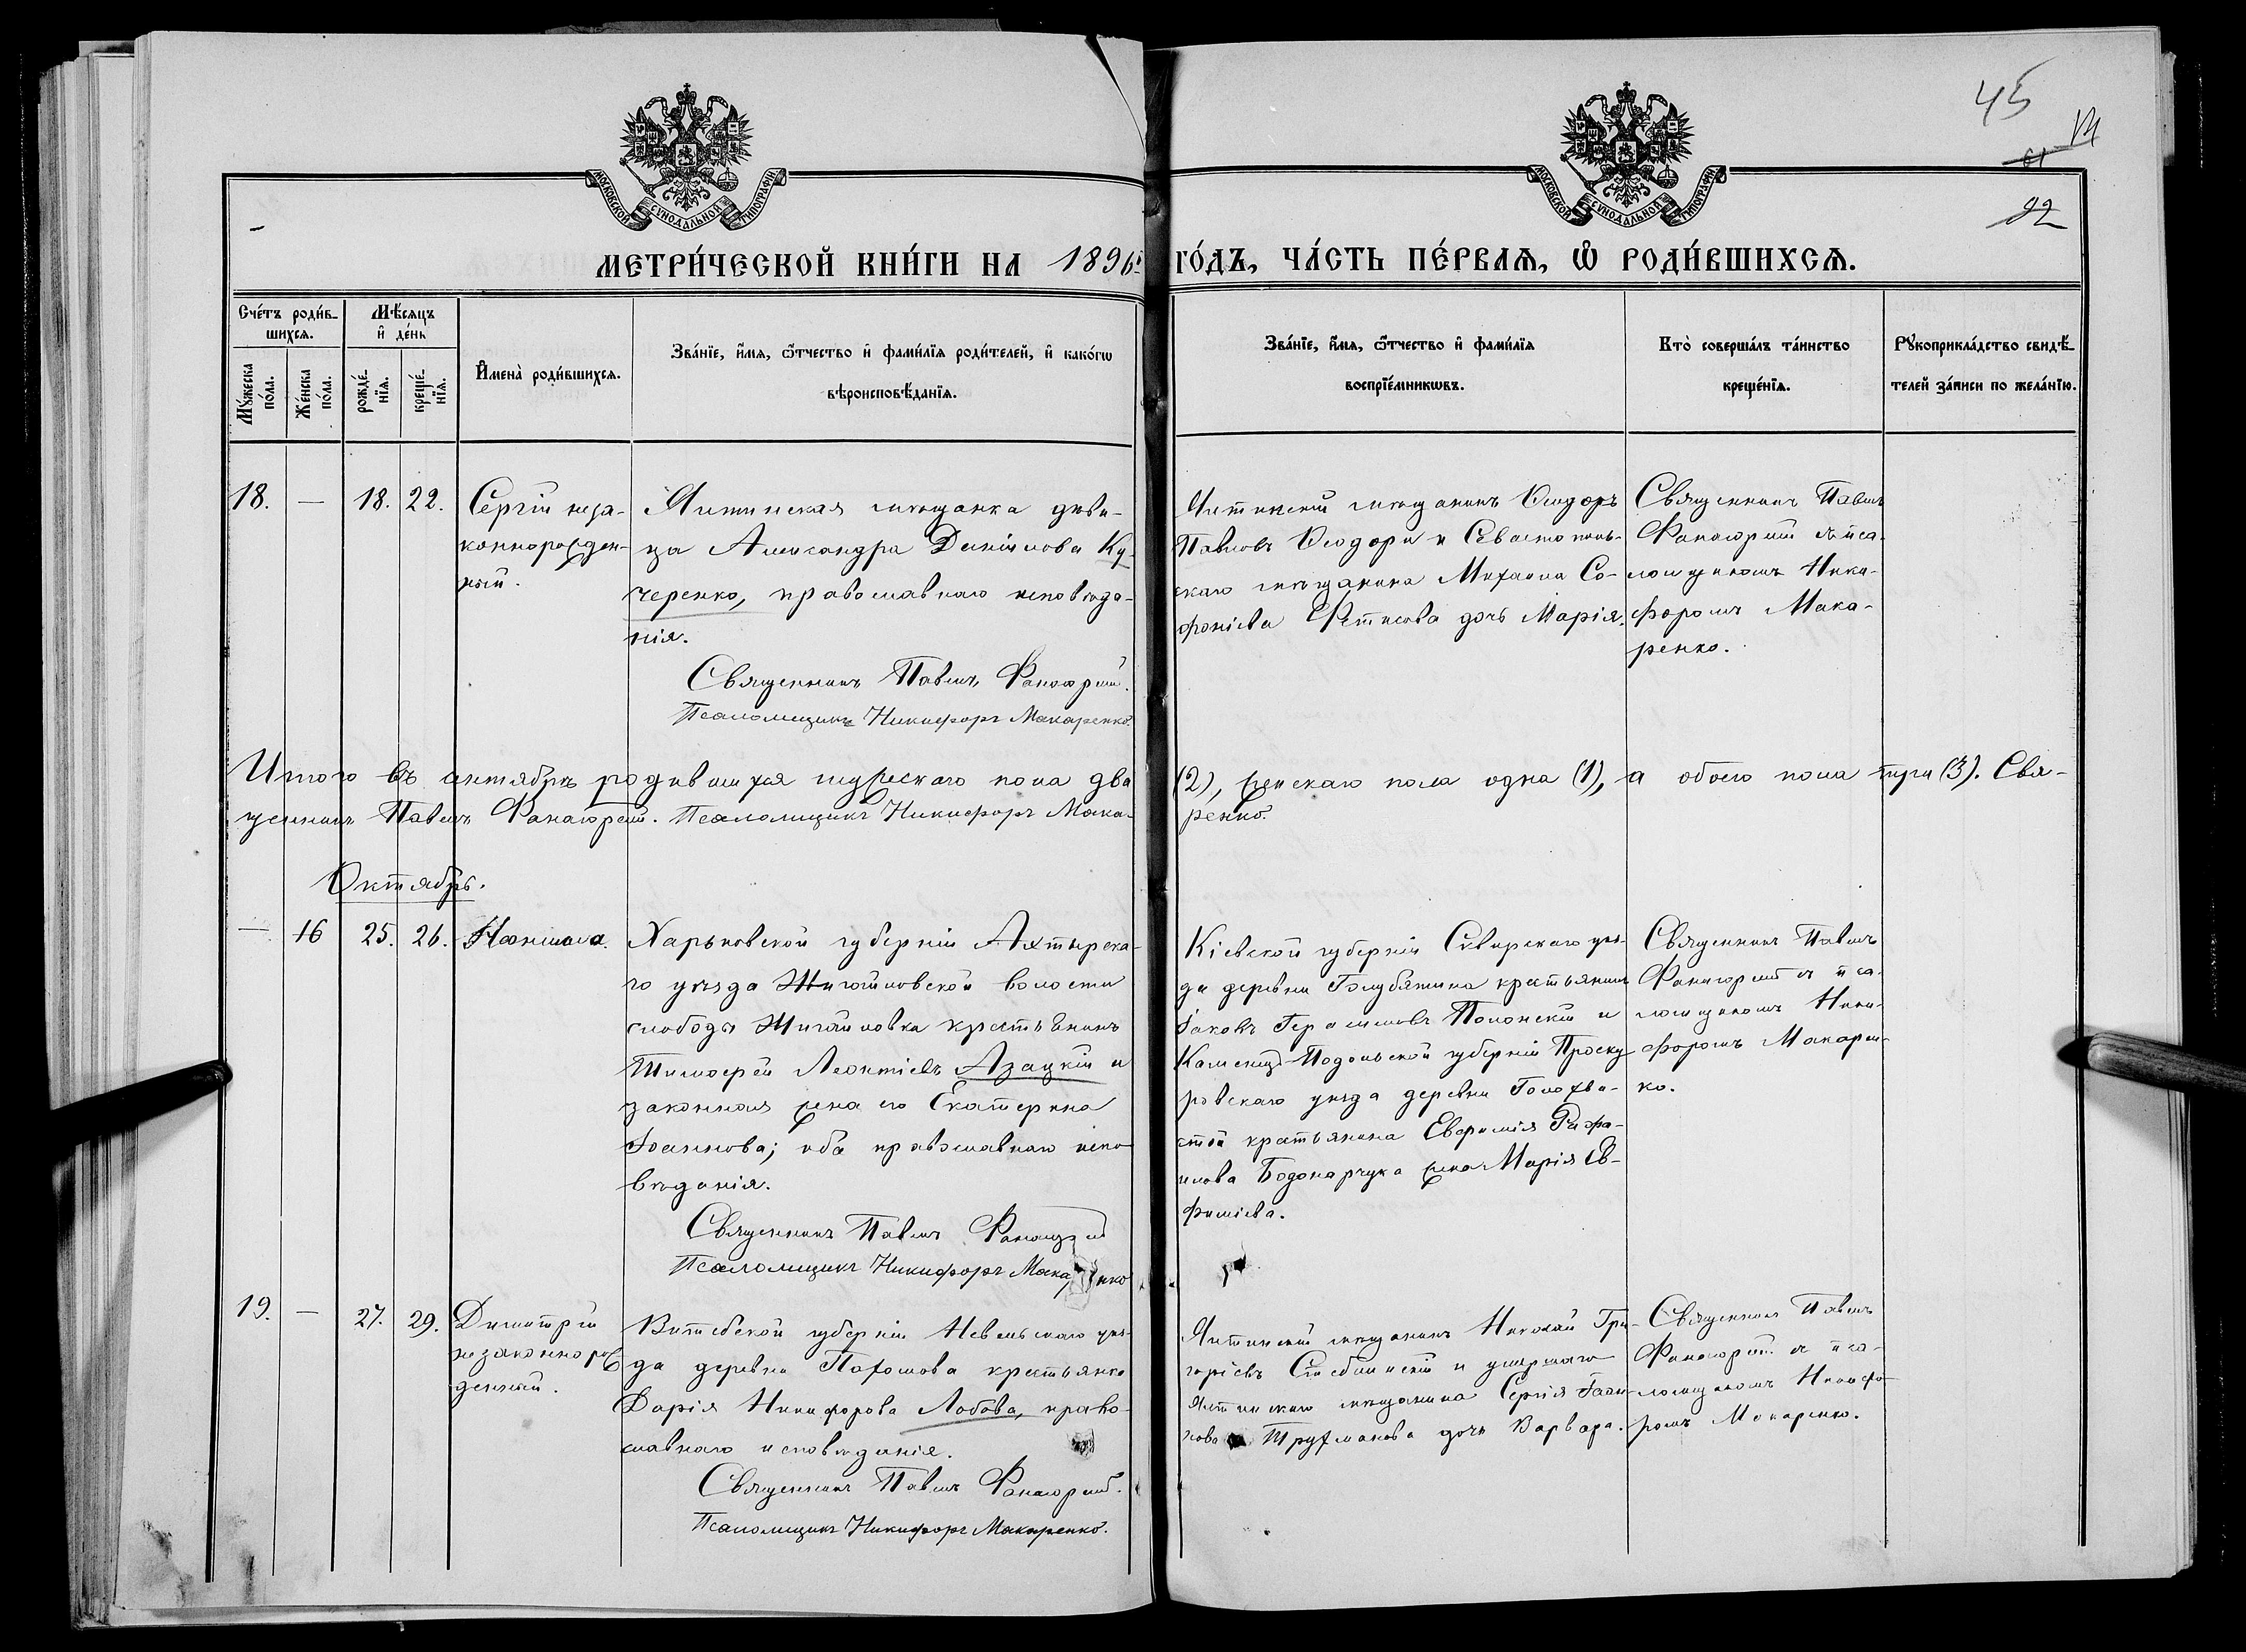 45
92
МОСКОВСКОЙ СѴНОДАЛЬНОЙ ТИПОГРАФІИ
МОСКОВСКОЙ СѴНОДАЛЬНОЙ ТИПОГРАФІИ
МЕТРИ́ЧЕСКОЙ КНИ́ГИ НА 1896й
ГО́ДЪ, ЧА́СТЬ ПЕ́РВАѦ, Ѡ РОДИ́ВШИХСѦ.
Сче́тъ роди́в-
шихсѧ.
Мꙋ́жеска по́ла.
Же́нска по́ла.
Мѣ́сѧцъ
и҆ де́нь
рожде́-нїѧ.
креще́-нїѧ.
И҆мена̀ роди́вшихсѧ.
Зва́нїе, и҆́мѧ, ѻ҆́тчество и҆ фами́лїѧ роди́телей, и҆ како́гѡ
вѣроисповѣ́данїѧ.
Зва́нїе, и҆́мѧ, ѻ҆́тчество и҆ фами́лїѧ
воспрїе́мникѡвъ.
Кто̀ соверша́лъ та́инство
креще́нїѧ.
Рꙋкоприкла́дство свидѣ́-
телей за́писи по жела́нїю.
18. — 18. 22.
Сергій неза-
коннорожден-
ный.
Ялтинская мѣщанка дѣви-
ца Александра Даніилова Ку-
черенко, православнаго исповѣда-
нія.
Священникъ Павелъ Фанагорий.
Псаломщикъ Никифоръ Макаренко.
Ялтинский мѣщанинъ Ѳеодоръ
Павловъ Ѳеодори и Севастополь-
скаго мѣщанина Михаила Со-
фоніева Фетисова дочь Марія.
Священникъ Павелъ
Фанагорий съ пса-
ломщикомъ Ники-
форомъ Мака-
ренко.
Итого въ сентябрѣ родившихся мужескаго пола два (2), женскаго пола одна (1), а обоего пола три (3). Свя-
щенникъ Павелъ Фанагорий. Псаломщикъ Никифоръ Мака- ренко.
Октябрь.
— 16 25. 26.
Харьковской губерніи Ахтырска-
го уѣзда Жигайловской волости
слободы Жигайловка крестьянинъ
Тимофей Леонтіевъ Азацкій и
законная жена его Екатерина
Іоаннова; оба православнаго испо-
вѣданія.
Священникъ Павелъ Фанагорий
Псаломщикъ Никифоръ Макаренко
Кіевской губерніи Сквирскаго уѣз-
да деревни Голубятина крестьянинъ
Іаковъ Герасимовъ Полонскій и
Каменец-Подольской губерніи Проску-
ровскаго уѣзда деревни Голохва-
стой крестьянина Евфимія
Бодонарчука жена Марія Ев-
фиміева.
Священникъ Павелъ
Фанагорий съ пса-
ломщикомъ Ники-
форомъ Макарен-
ко.
19. — 27. 29.
Димитрій
незаконнорож-
денный.
Витебской губерніи Невельскаго уѣз-
да деревни Пахомова крестьянка
Дарія Никифорова Лобова, право-
славнаго исповѣданія.
Священникъ Павелъ Фанагорий.
Псаломщикъ Никифоръ Макаренко.
Ялтинский мѣщанинъ Николай Гри-
горіевъ и умершаго
Ялтинскаго мѣщанина Сергія
Трухманова дочь Варвара.
Священникъ Павелъ
Фанагорий съ пса-
ломщикомъ Никифо-
ромъ Макаренко.